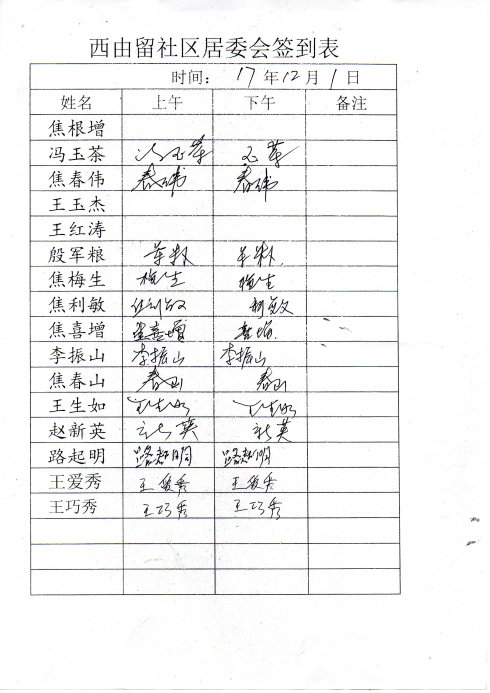 西由留社区居委会签到表
时间: 17年12月1日
姓名 上午 下午 备注
焦根增
冯玉茶 冯玉茶 玉茶
焦春伟 春伟 春伟
王玉杰
王红涛
殷军粮 军粮 军粮
焦梅生 梅生 梅生
焦利敏 焦利敏 利敏
焦喜增 焦喜增 喜增
李振山 李振山 李振山
焦春山 春山 春山
王生如 王生如 王生如
赵新英 新英 新英
路起明 路起明 路起明
王爱秀 王爱秀 王爱秀
王巧秀 王巧秀 王巧秀